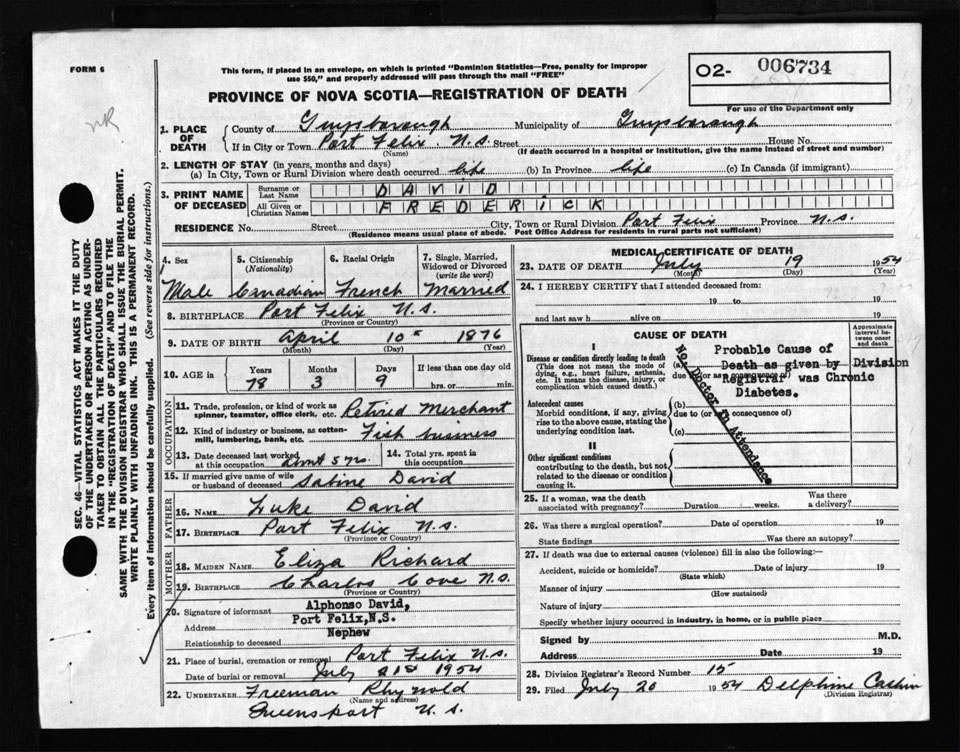 FORM 6
This form, if placed in an envelope, on which is printed "Dominion Statistics—Free, penalty for improper
use $50," and properly addressed will pass through the mail "FREE"
O2- 006734
For use of the Department only
PROVINCE OF NOVA SCOTIA—REGISTRATION OF DEATH
NR
SEC. 46—VITAL STATISTICS ACT MAKES IT THE DUTY
OF THE UNDERTAKER OR PERSON ACTING AS UNDER-
TAKER TO OBTAIN ALL THE PARTICULARS REQUIRED
IN THE "REGISTRATION OF DEATH" AND TO FILE THE
SAME WITH THE DIVISION REGISTRAR WHO SHALL ISSUE THE BURIAL PERMIT.
WRITE PLAINLY WITH UNFADING INK. THIS IS A PERMANENT RECORD.
Every item of information should be carefully supplied. (See reverse side for instructions.)
1. PLACE OF DEATH County of Guysborough Municipality of Guysborough
If in City or Town Port Felix. N.S. Street House No.
(Name) (If death occurred in a hospital or institution, give the name instead of street and number)
2. LENGTH OF STAY (in years, months and days)
(a) In City, Town or Rural Division where death occurred life (b) In Province life (c) In Canada (if immigrant)
3. PRINT NAME OF DECEASED Surname or Last Name DAVID
All Given or Christian Names FREDERICK
RESIDENCE No. Street City, Town or Rural Division Port Felix Province N.S.
(Residence means usual place of abode. Post Office Address for residents in rural parts not sufficient)
4. Sex 5. Citizenship (Nationality) 6. Racial Origin 7. Single, Married, Widowed or Divorced (write the word)
Male Canadian French Married
8. BIRTHPLACE Port Felix N.S.
(Province or Country)
9. DATE OF BIRTH April 10 1876
(Month) (Day) (Year)
10. AGE in Years Months Days If less than one day old
78 3 9 hrs. or min.
OCCUPATION
11. Trade, profession, or kind of work as spinner, teamster, office clerk, etc. Retired Merchant
12. Kind of industry or business, as cotton-mill, lumbering, bank, etc. Fish business
13. Date deceased last worked at this occupation about 5 yrs. 14. Total yrs. spent in this occupation
15. If married give name of wife or husband of deceased Sabine David
FATHER
16. NAME Luke David
17. BIRTHPLACE Port Felix N.S.
(Province or Country)
MOTHER
18. MAIDEN NAME Eliza Richard
19. BIRTHPLACE Charlos Cove N.S.
(Province or Country)
20. Signature of informant Alphonso David,
Address Port Felix,N.S.
Relationship to deceased Nephew
21. Place of burial, cremation or removal Port Felix N.S.
Date of burial or removal July 21st 1954
22. UNDERTAKER Freeman Rhynold
(Name and address)
Queensport N.S.
MEDICAL CERTIFICATE OF DEATH
23. DATE OF DEATH July 19 1954
(Month) (Day) (Year)
24. I HEREBY CERTIFY that I attended deceased from:
19 to 19
and last saw h alive on 19
CAUSE OF DEATH
Approximate interval between onset and death
I
Disease or condition directly leading to death
(This does not mean the mode of dying, e.g., heart failure, asthenia, etc. It means the disease, injury, or complication which caused death.)
(a)
due to (or as a consequence of)
Probable Cause of
Death as given by Division
Registrar was Chronic
Diabetes.
No Doctor in Attendance
Antecedent causes
Morbid conditions, if any, giving rise to the above cause, stating the underlying condition last.
(b)
due to (or as a consequence of)
(c)
II
Other significant conditions
contributing to the death, but not related to the disease or condition causing it.
25. If a woman, was the death associated with pregnancy? Duration weeks. Was there a delivery?
26. Was there a surgical operation? Date of operation 19
State findings Was there an autopsy?
27. If death was due to external causes (violence) fill in also the following:—
Accident, suicide or homicide? Date of injury 19
(State which)
Manner of injury
(How sustained)
Nature of injury
Specify whether injury occurred in industry, in home, or in public place
Signed by M.D.
Address Date 19
28. Division Registrar's Record Number 15
29. Filed July 20 1954 Delphine Cashin
(Division Registrar)